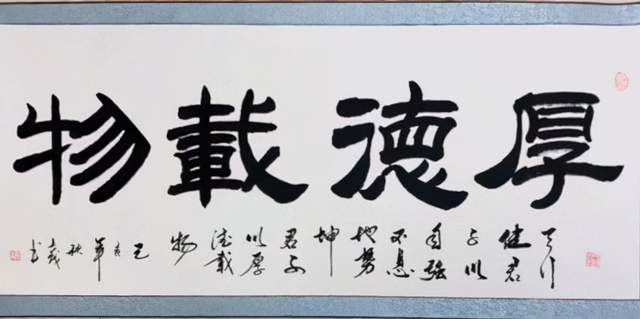 厚德載物
天行
健君
子以
自強
不息
地勢
坤
君子
以厚
德載
物
己亥
年
秋
书